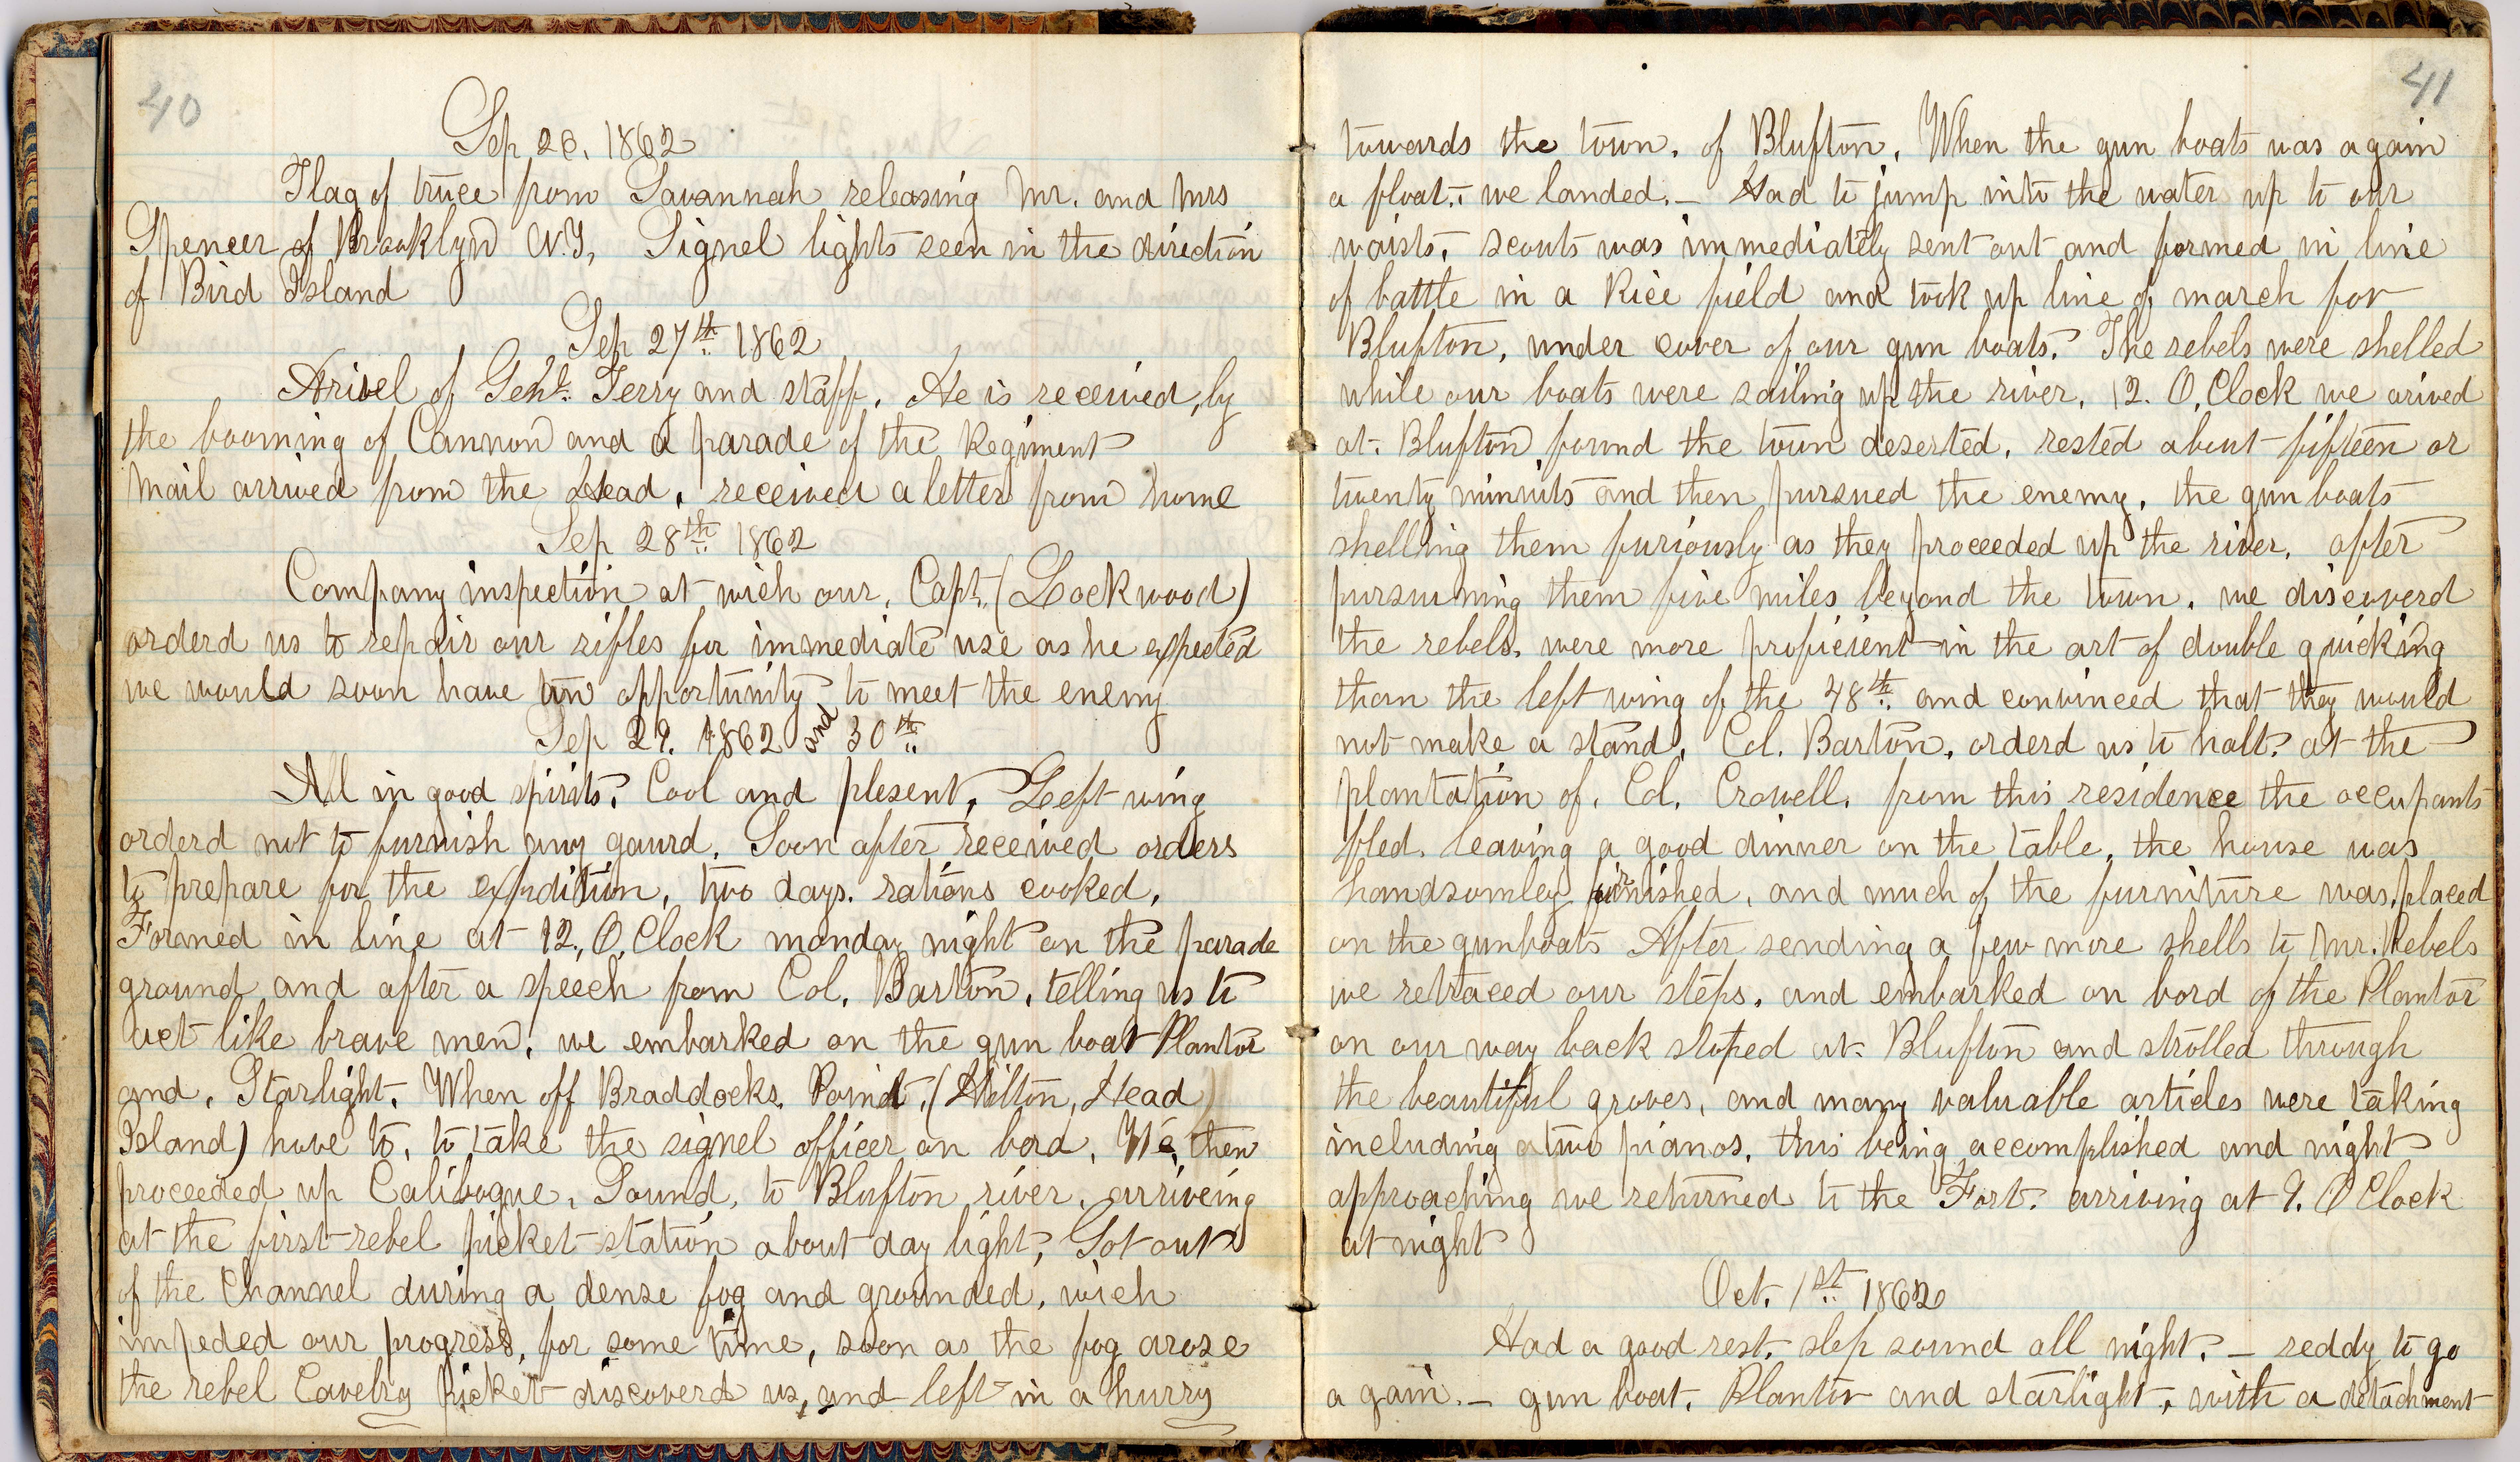 40
Sep 26, 1862
Flag of truce from Savannah releasing Mr. and Mrs
Spencer of Brooklyn N.Y, Signel lights seen in the direction
of Bird Island
Sep 27th 1862
Arivel of Genl. Terry and staff. He is received, by
the booming of Cannon and a parade of the Regiment
Mail arrived from the Head, received a letter from home
Sep 28th 1862
Company inspection at wich our, Capt. (Lockwood)
orderd us to repair our rifles for immediate use as he expected
we would soon have an opportunity to meet the enemy
Sep 29. 1862 and 30th
All in good spirits, Cool and plesent, Left wing
orderd not to furnish any gaurd. Soon after received orders
to prepare for the expedition, two days. rations cooked,
Formed in line at 12, O, Clock monday night on the parade
ground and after a speech from Col, Barton, telling us to
act like brave men, we embarked on the gun boat Plantor
and, Starlight, When off Braddocks, Point, (Hilton, Head
Island) hove to, to take the signel officer on bord, We, then
proceeded up Calibogue, Sound, to Blufton river, arriveing
at the first rebel picket station about day light, Got out
of the Channel during a dense fog and grounded, wich
impeded our progress, for some time, soon as the fog arose
the rebel Cavelry picket discoverd us, and left in a hurry
41
towards the town, of Blufton, When the gun boats was again
a float, we landed,- Had to jump into the water up to our
waists, scouts was immediately sent out and formed in line
of battle in a Rice field and took up line of march for
Blufton, under cover of our gun boats, The rebels were shelled
while our boats were sailing up the river, 12. O, Clock we arived
at. Blufton found the town deserted, rested about fifteen or
twenty minuits and then pursued the enemy, the gun boats
shelling them furiously as they proceeded up the river, after
pursuining them five miles beyond the town, we discoverd
the rebels, were more proficient in the art of double quicking
than the left wing of the 48th and convinced that they would
not make a stand, Col. Barton, orderd us to halt, at the
plantation of, Col, Crowell, from this residence the occupants
fled, leaving a good dinner on the table, the house was
handsomley furnished, and much of the furniture was, placed
on the gunboats After sending a few more shells to Mr. Rebels
we retraced our steps, and embarked on bord of the Plantor
on our way back stoped at. Blufton and strolled through
the beautiful groves, and many valuable articles were taking
including two pianos, this being accomplished and night
approaching we returned to the Fort, arriving at 9. O Clock
at night
Oct. 1st 1862
Had a good rest, slep sound all night,- reddy to go
a gain.- gun boat, Plantor and starlight, with a detachment